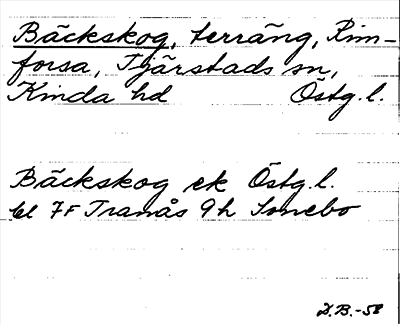 Bäckskog, terräng, Rim-
forsa, Tjärstads sn,
Kinda hd Östg.l.
Bäckskog ek Östg.l.
bl 7F Tranås 9h Sonebo
D.B.-58